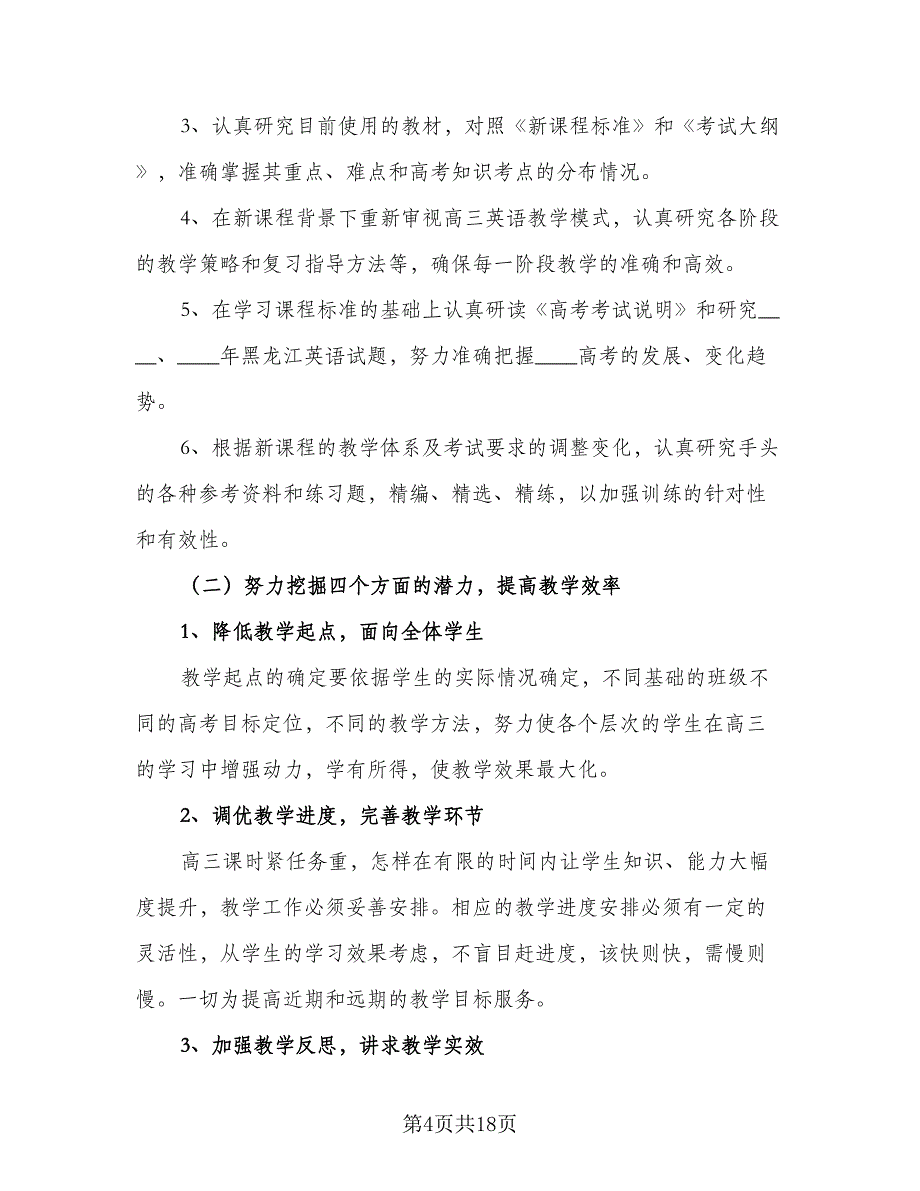 3、认真研究目前使用的教材，对照《新课程标准》和《考试大纲
》，准确掌握其重点、难点和高考知识考点的分布情况。
4、在新课程背景下重新审视高三英语教学模式，认真研究各阶段
的教学策略和复习指导方法等，确保每一阶段教学的准确和高效。
5、在学习课程标准的基础上认真研读《高考考试说明》和研究__
__、____年黑龙江英语试题，努力准确把握____高考的发展、变化趋
势。
6、根据新课程的教学体系及考试要求的调整变化，认真研究手头
的各种参考资料和练习题，精编、精选、精练，以加强训练的针对性
和有效性。
（二）努力挖掘四个方面的潜力，提高教学效率
1、降低教学起点，面向全体学生
教学起点的确定要依据学生的实际情况确定，不同基础的班级不
同的高考目标定位，不同的教学方法，努力使各个层次的学生在高三
的学习中增强动力，学有所得，使教学效果最大化。
2、调优教学进度，完善教学环节
高三课时紧任务重，怎样在有限的时间内让学生知识、能力大幅
度提升，教学工作必须妥善安排。相应的教学进度安排必须有一定的
灵活性，从学生的学习效果考虑，不盲目赶进度，该快则快，需慢则
慢。一切为提高近期和远期的教学目标服务。
3、加强教学反思，讲求教学实效
第4页共18页